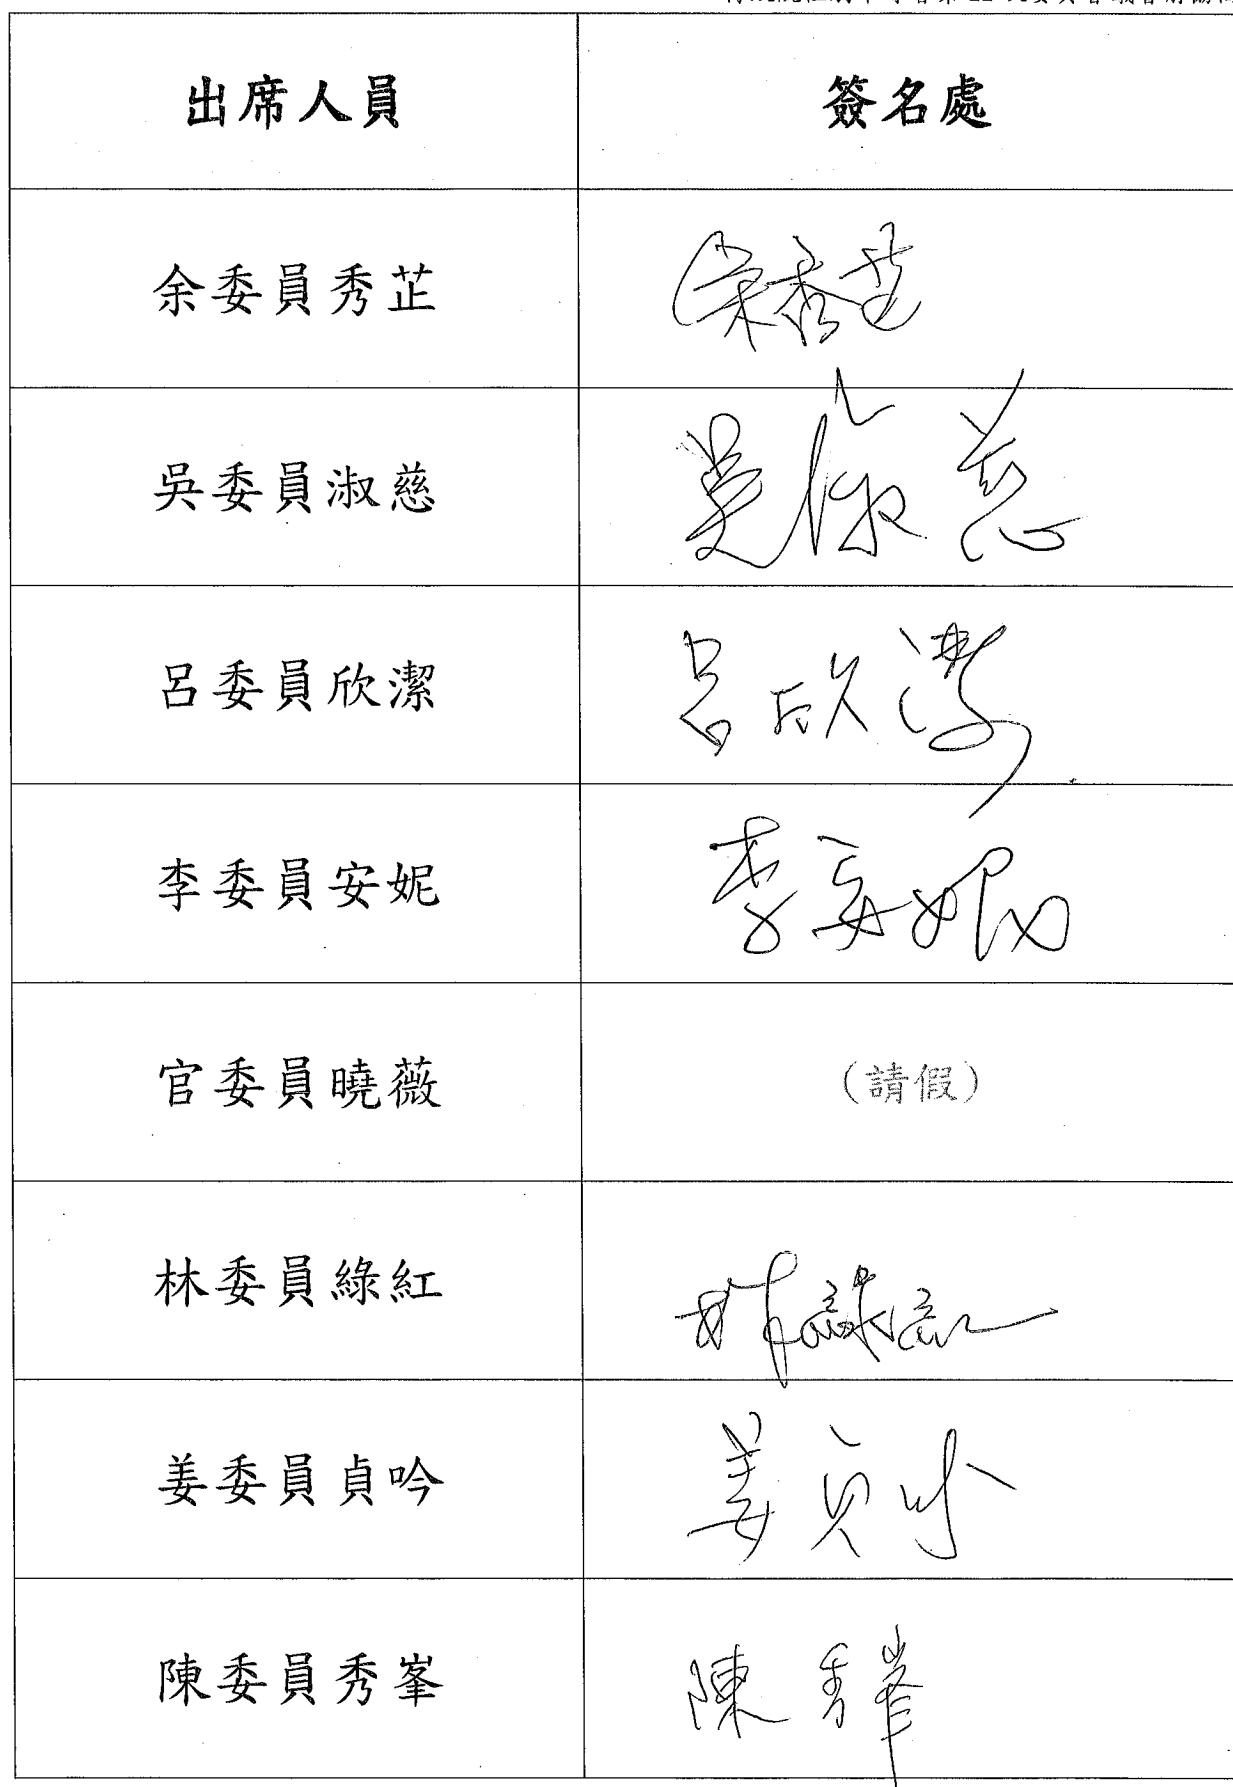 出席人員 簽名處
余委員秀芷 余秀芷
吳委員淑慈 吳淑慈
呂委員欣潔 呂欣潔
李委員安妮 李安妮
官委員曉薇 (請假)
林委員綠紅 林綠紅
姜委員貞吟 姜貞吟
陳委員秀峯 陳秀峯